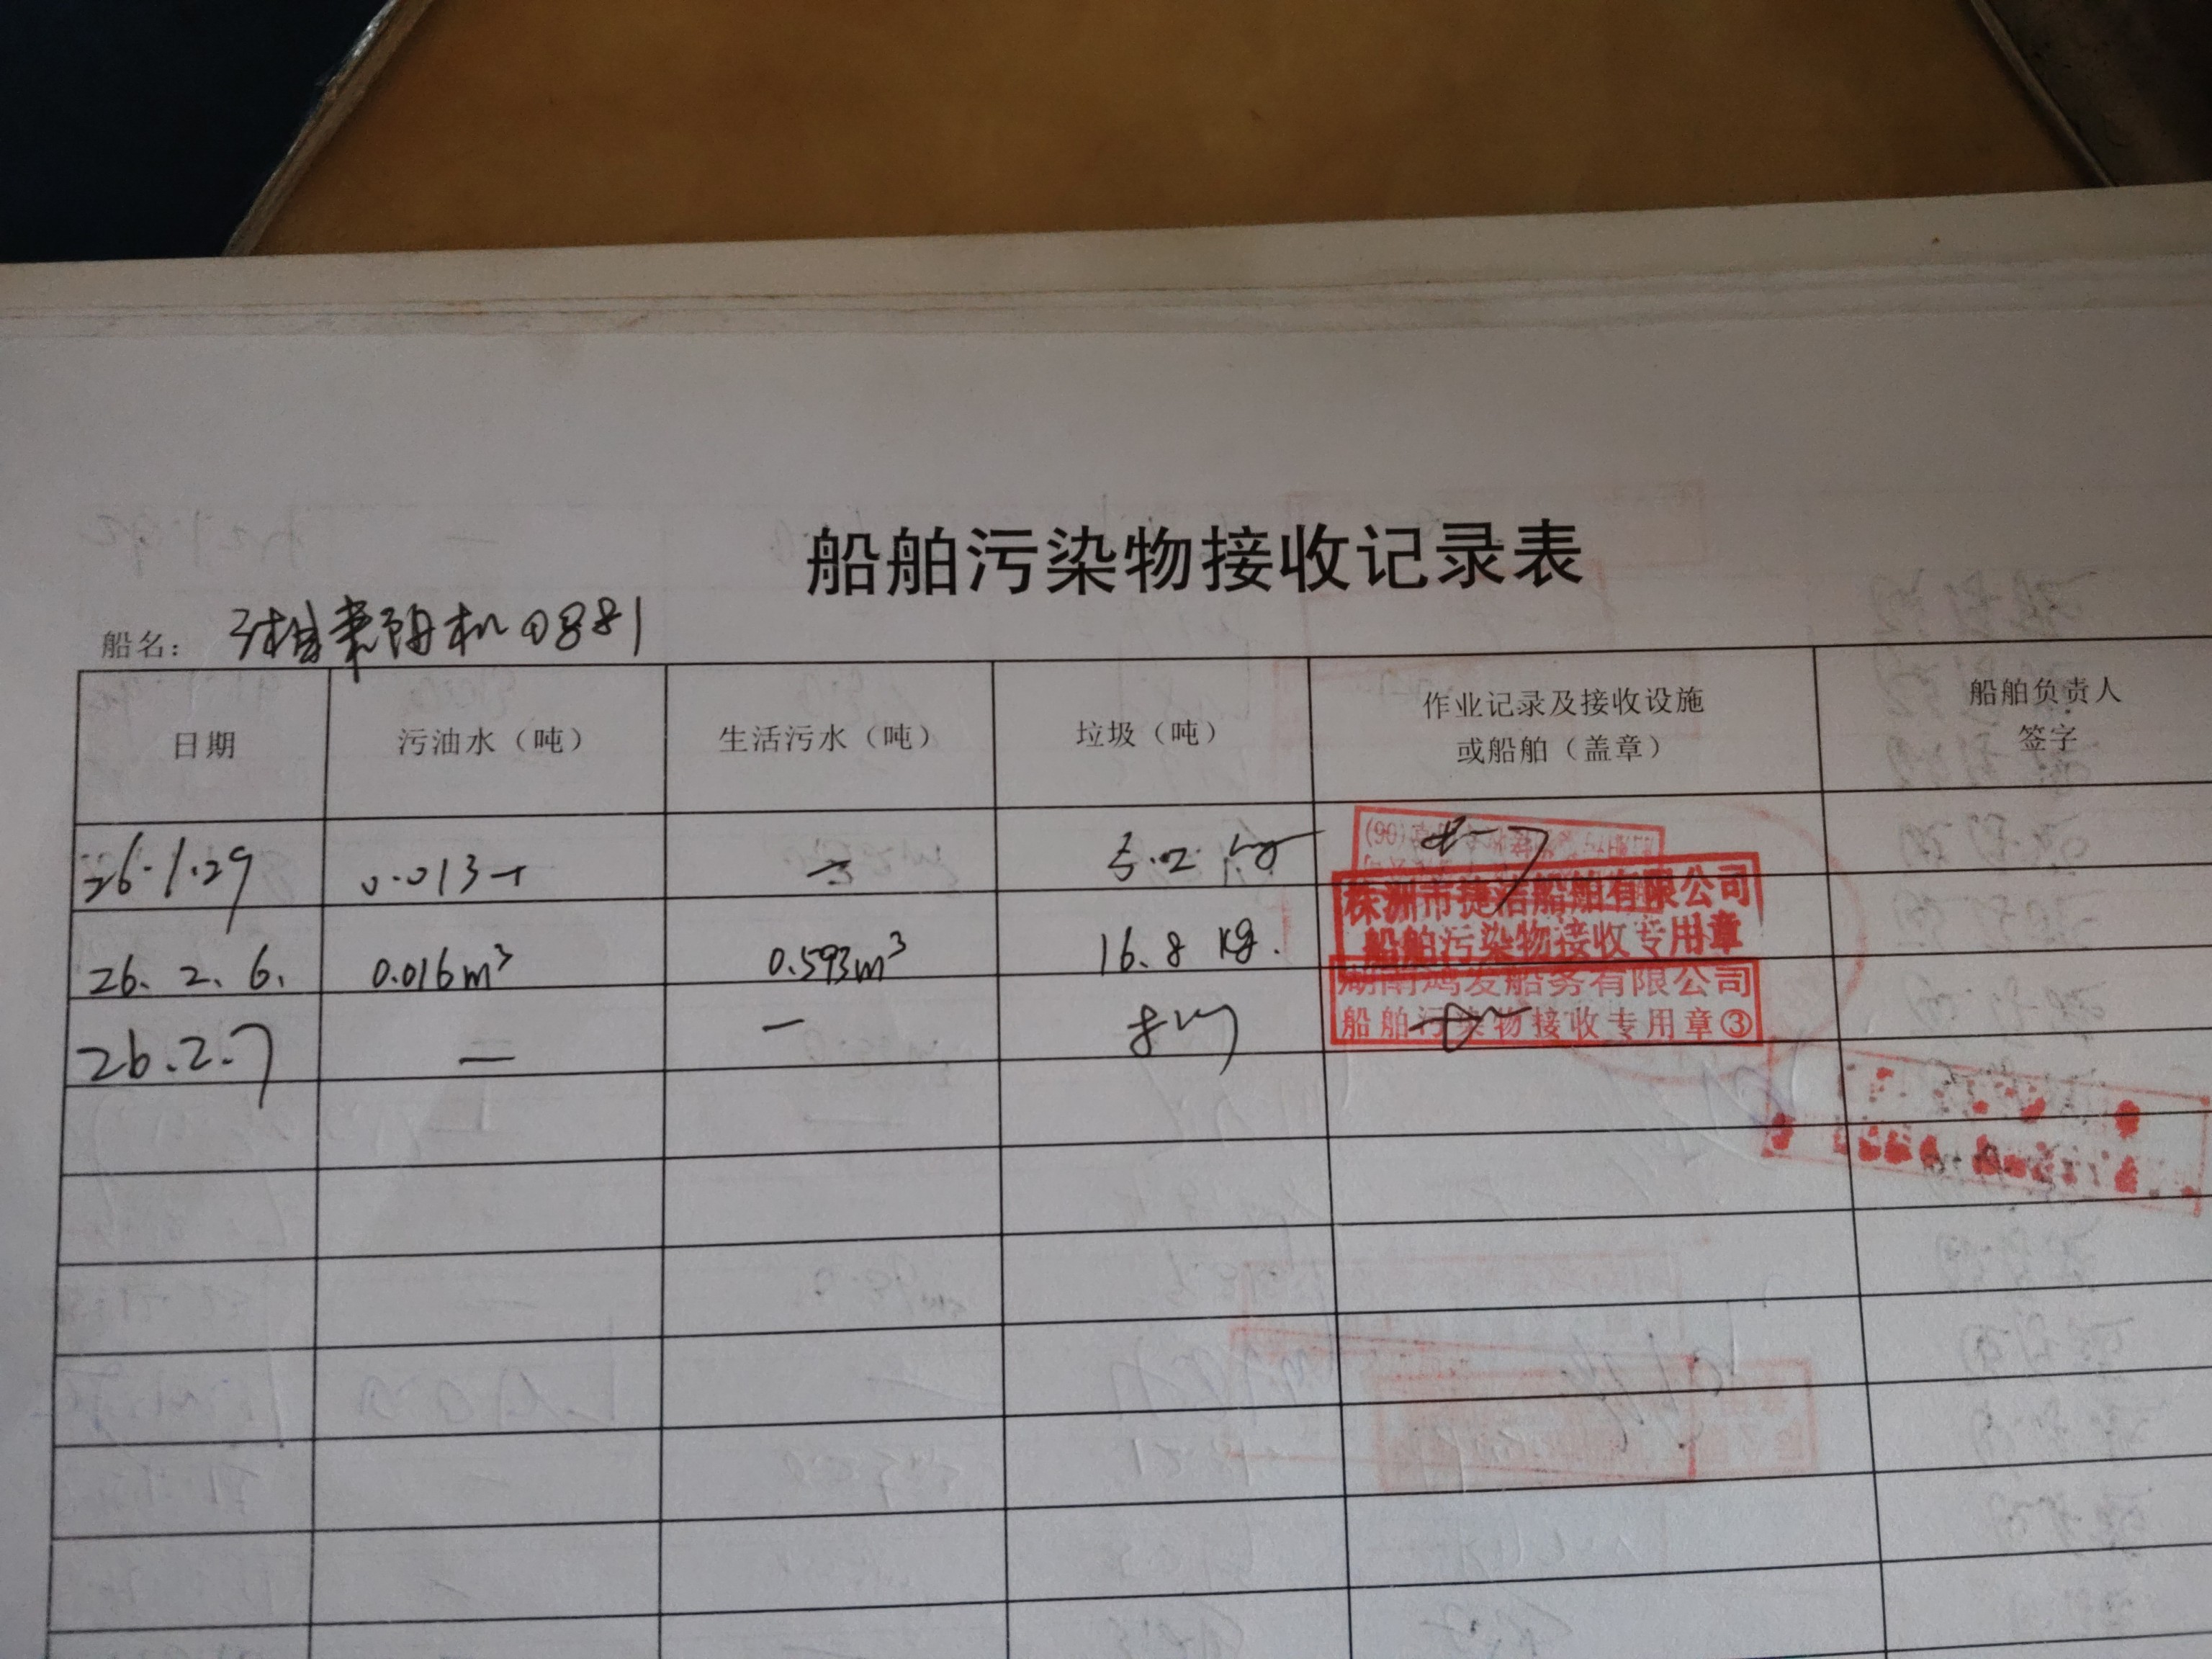 船舶污染物接收记录表
船名： 湘耒阳机0881
日期 污油水（吨） 生活污水（吨） 垃圾（吨） 作业记录及接收设施 船舶负责人
或船舶（盖章） 签字
26.1.29 0.013 — 5.2 kg
株洲市捷洁船舶有限公司
船舶污染物接收专用章
26. 2. 6. 0.016m³ 0.593m³ 16.8 kg.
湖南鸿发船务有限公司
船舶污染物接收专用章③
26.2.7 — —